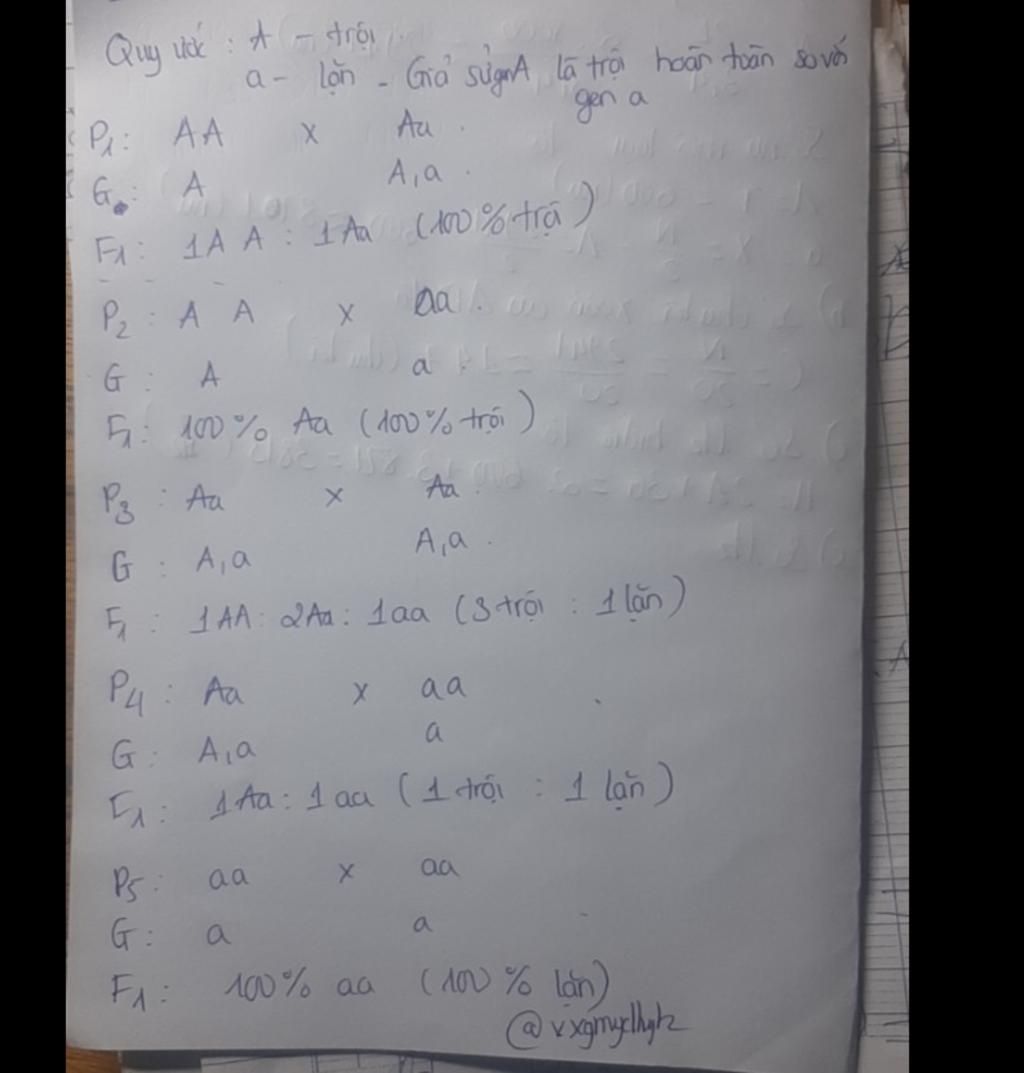 Quy ước : A - trội.
a - lặn - Giả sử gen A là trội hoàn toàn so với
gen a
P1: AA x Aa.
G.: A A,a.
F1: 1A A : 1Aa (100% trội)
P2 : A A x aa.
G : A a
F1: 100% Aa (100% trội)
P3 : Aa x Aa.
G : A,a A,a.
F1 : 1AA : 2Aa : 1aa (3 trội : 1 lặn)
P4 : Aa x aa
G : A,a a
F1 : 1Aa : 1aa (1 trội : 1 lặn)
P5 : aa x aa
G : a a
F1 : 100% aa (100% lặn)